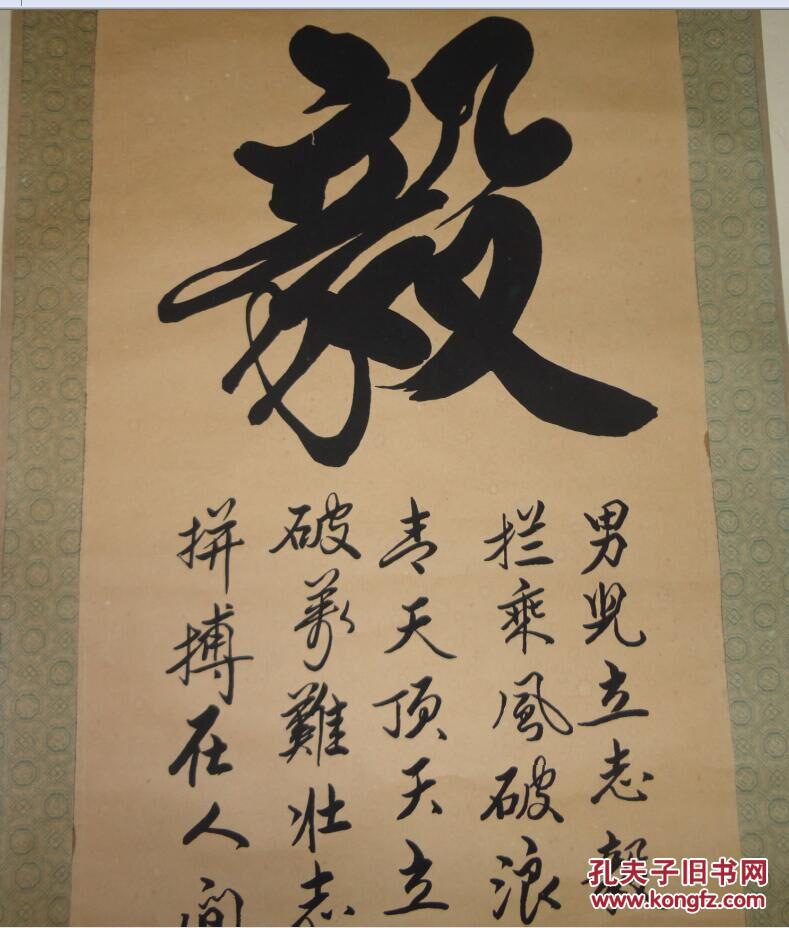 毅
男兒立志毅
拦乘風破浪
青天顶天立
破萬難壮志
拼搏在人間
孔夫子旧书网
www.kongfz.com